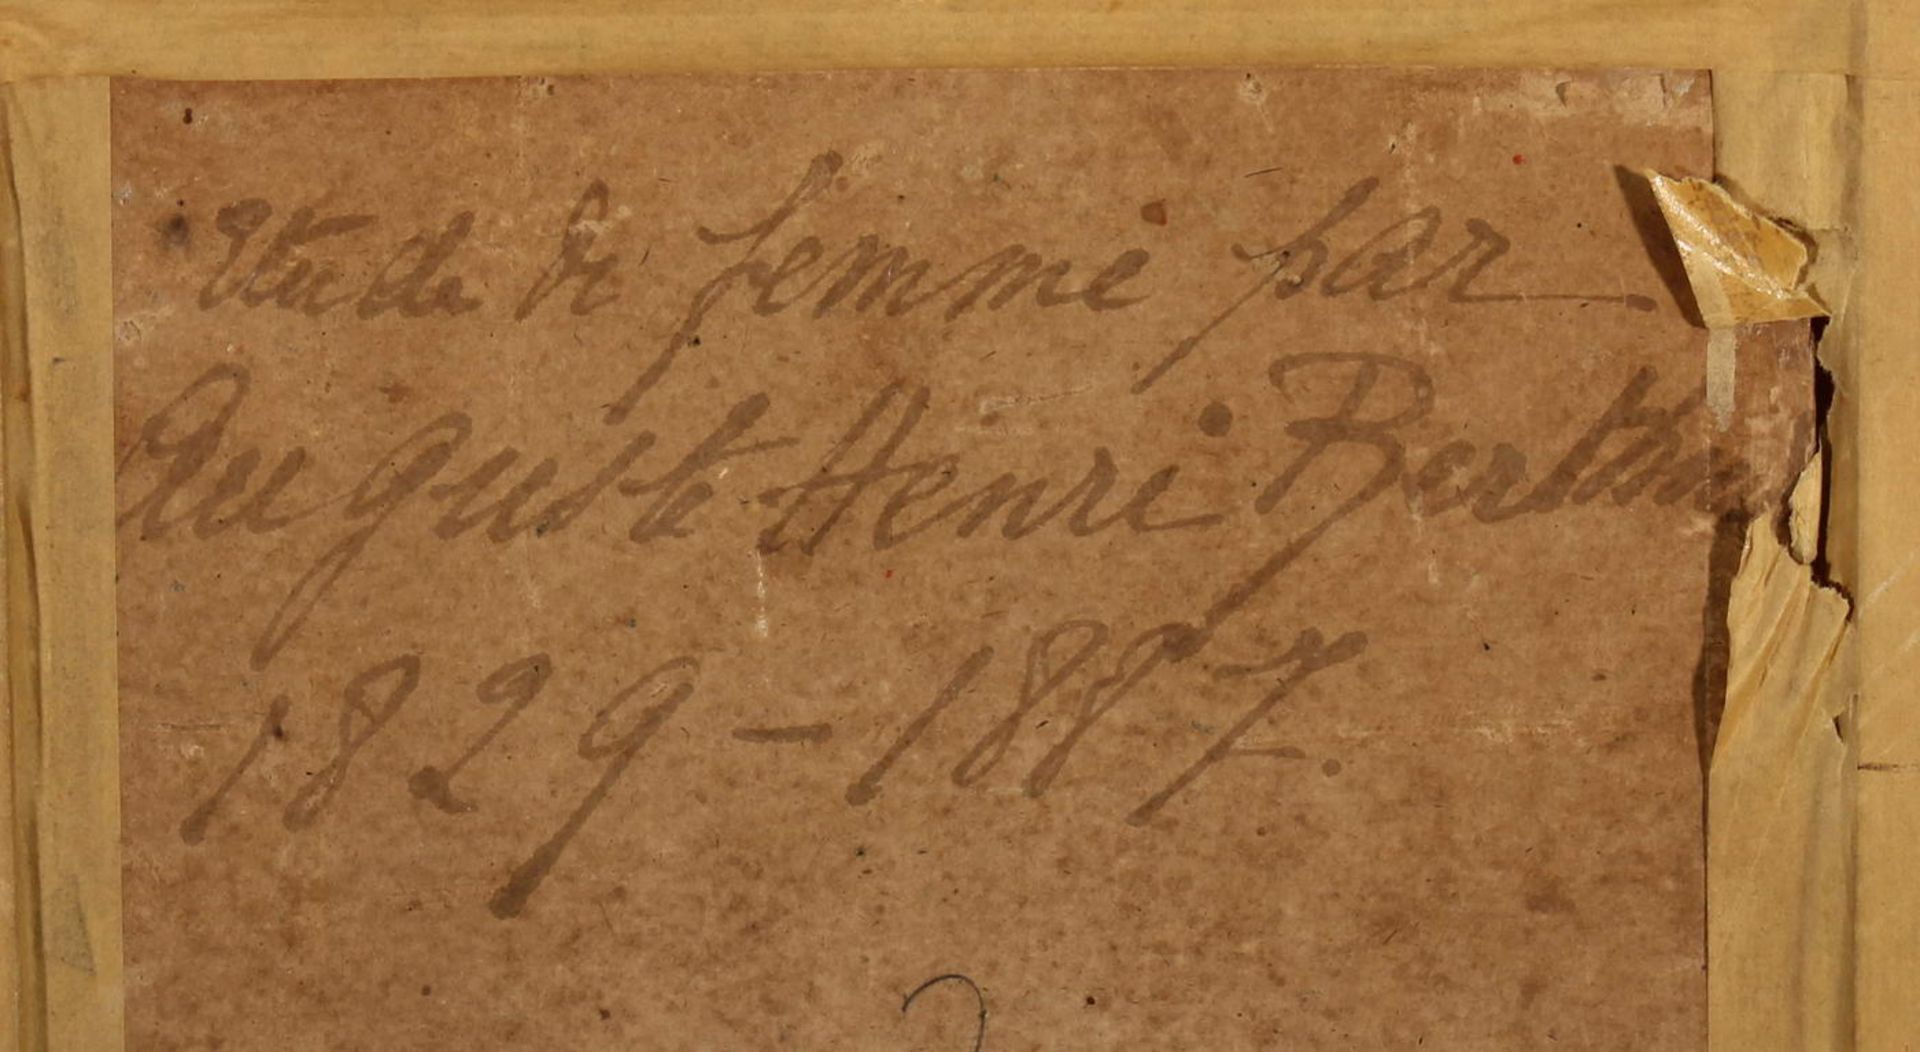 Etude de femme par
Auguste Henri Berth
1829 - 1887.